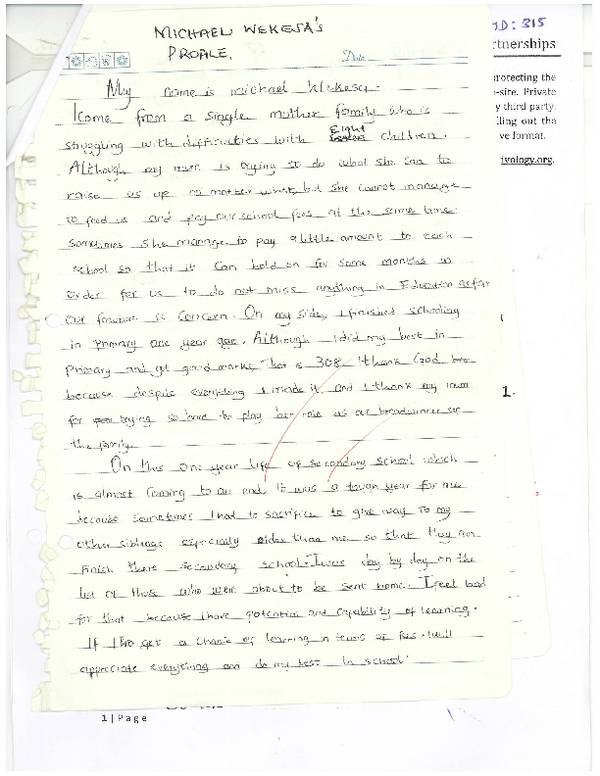 MICHAEL WEKESA'S
PROFILE.
Date
I.D: 315
rtnerships
protecting the
e-site. Private
y third party.
lling out the
ve format.
ivology.org.
1.
My name is michael Wekesa.
I come from a single mother family who is
struggling with difficulties with Eight children.
Although my mum is trying to do what she can to
raise us up no matter what, but she cannot manage
to feed us and pay our school fees at the same time.
sometimes she manage to pay a little amount to each
school so that it can hold on for some months in
order for us to do not miss anything in Education as far
our future is concern. On my side, I finished schooling
in primary one year ago. Although I did my best in
primary and get good marks that is 308. I thank God
because despite everything I made it and I thank my mum
for trying so hard to play her role as our breadwinner of
the family.
On this one year life of secondary school which
is almost coming to an end, It was a tough year for me
because sometimes I had to sacrifice to give way to my
other siblings especially older than me so that they can
finish there secondary school. I was day by day on the
list of those who were about to be sent home. I feel bad
for that because I have potential and capability of learning.
If I get a chance of learning in terms of fees. I will
appreciate everything and do my best in school.
1 | Page